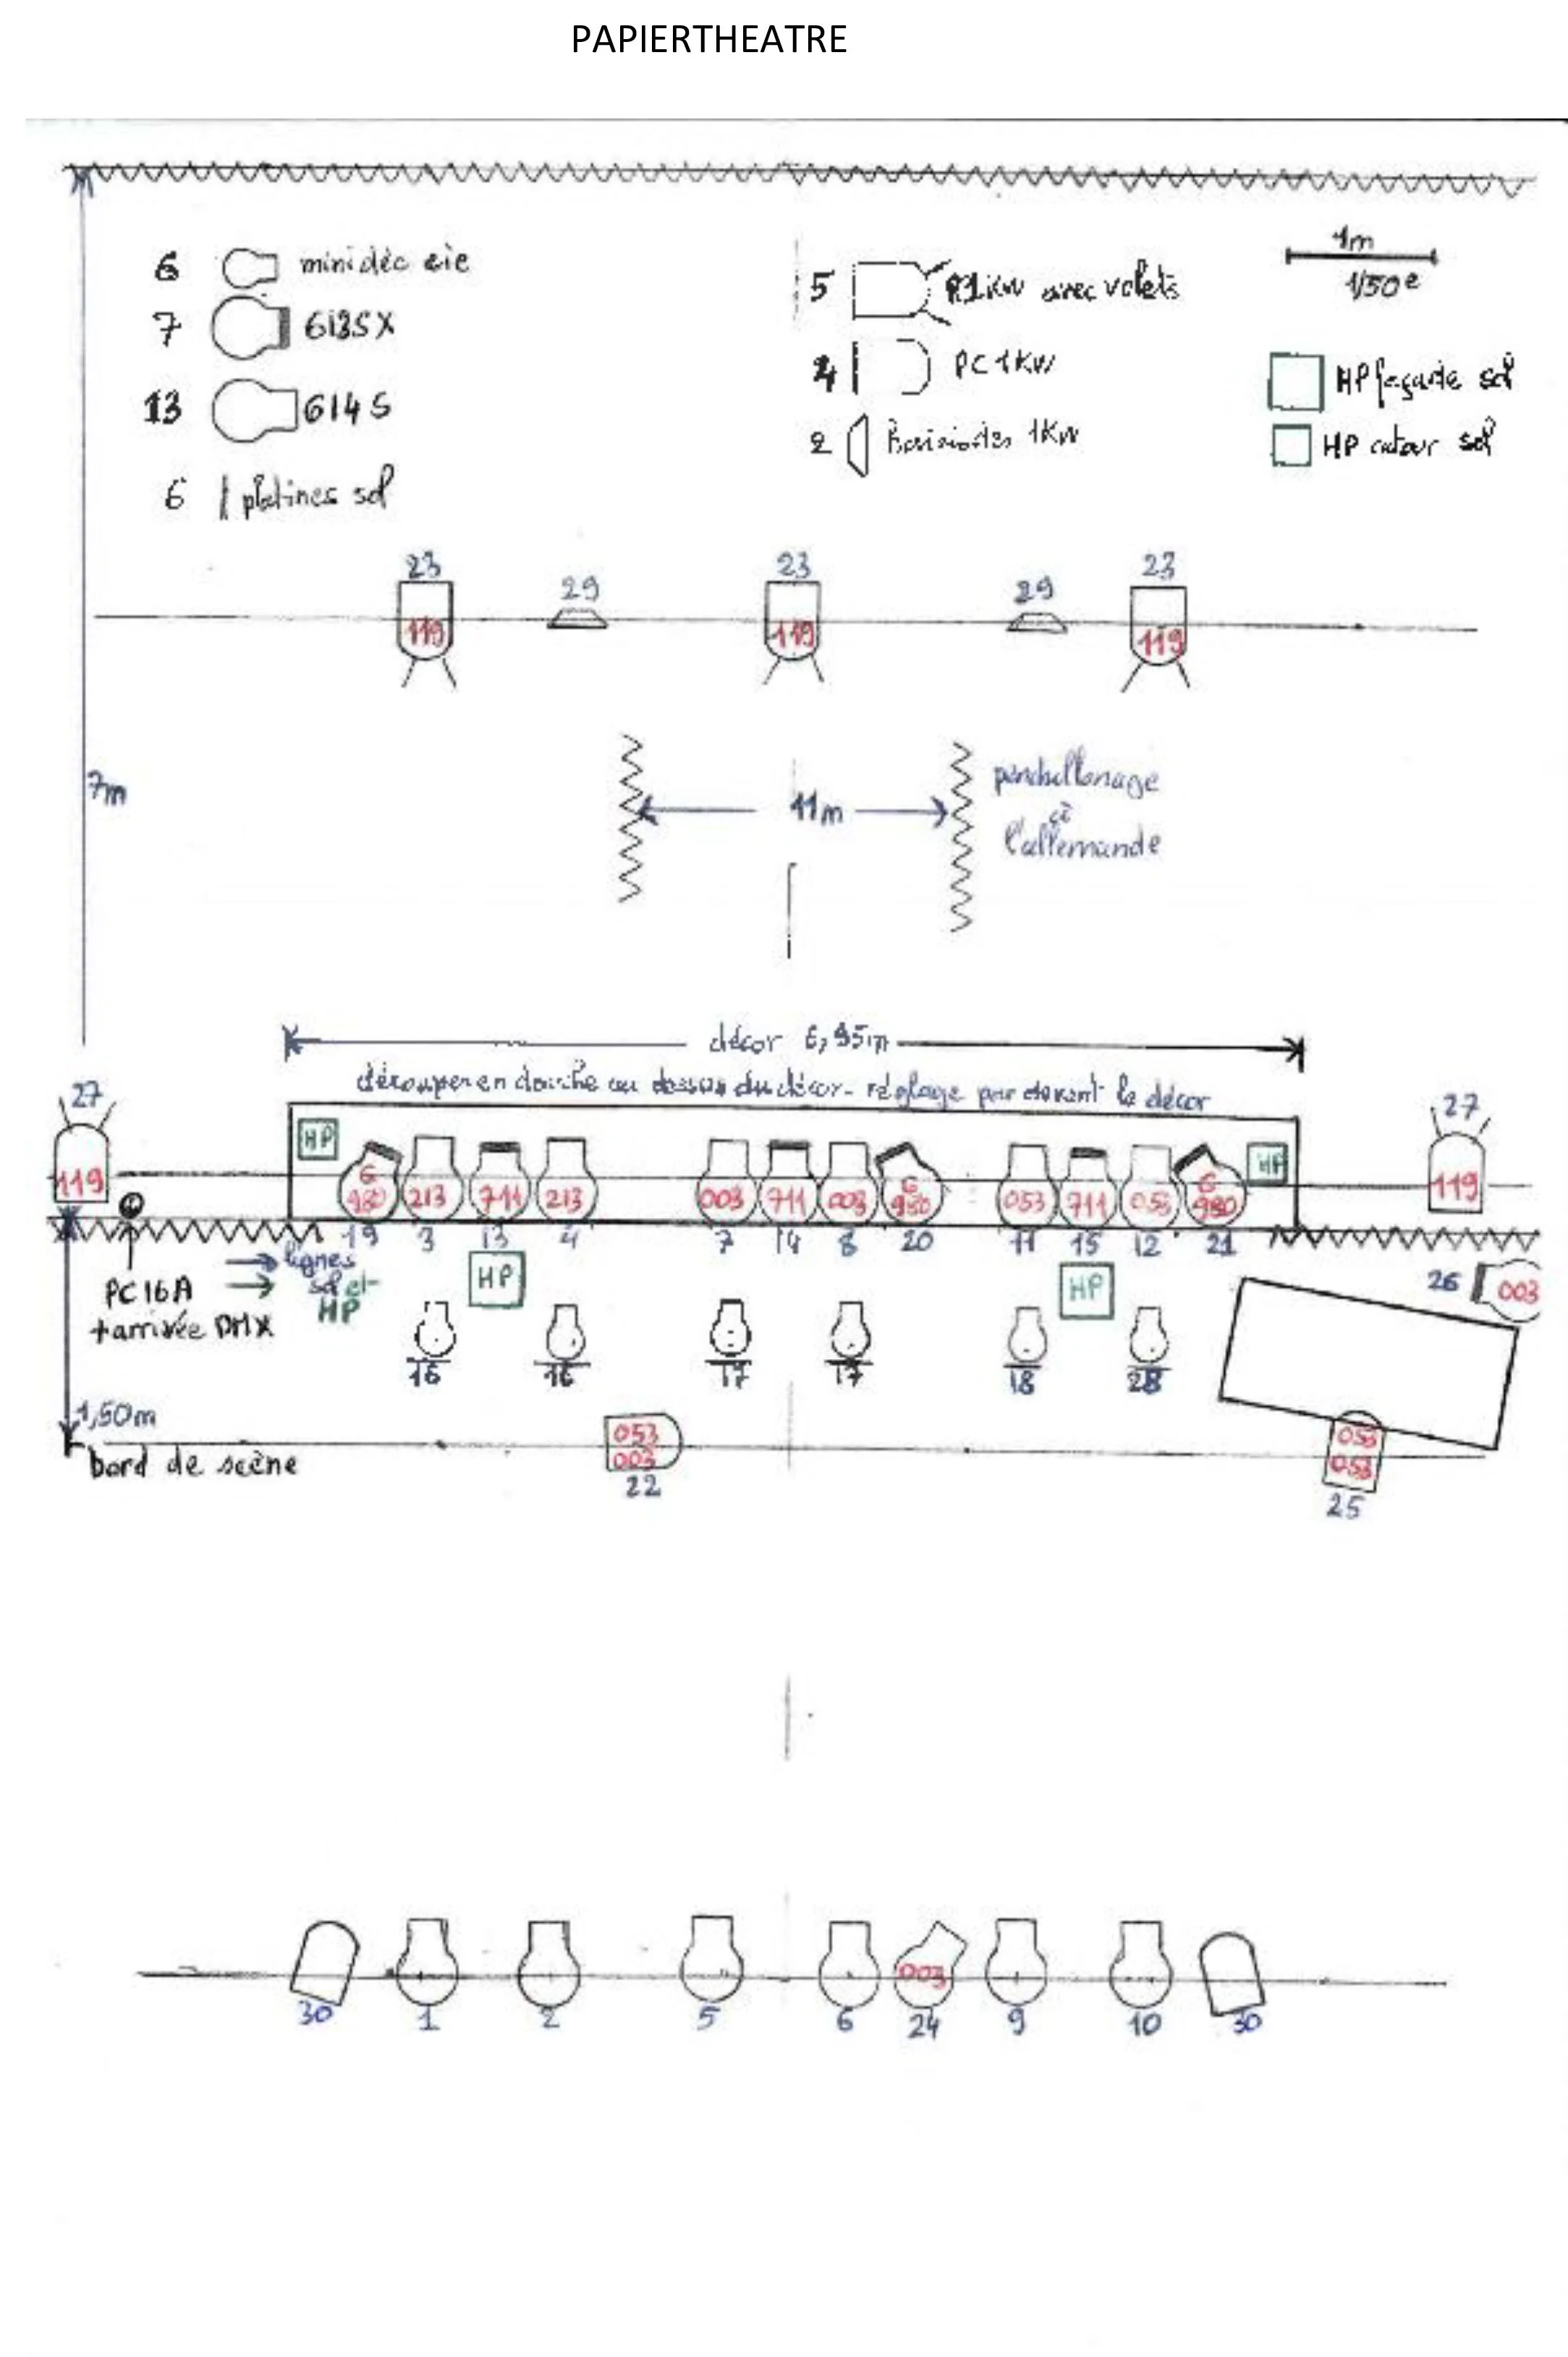 PAPIERTHEATRE
6 mini déc cie
7 613SX
13 614S
6 platines sol
5 P1KW avec volets
4 PC 1KW
2 1KW
1m
1/50e
HP façade sol
HP retour sol
23 29 23 29 23
119 119 119
7m
11m
à
l'allemande
décor 6,95m
découpes en douche au dessus du décor - réglage par devant le décor
27 27
HP HP
119 G 980 213 711 213 003 711 003 G 980 053 711 053 G 980 119
19 3 13 4 7 14 8 20 11 15 12 21
lignes
sol et
HP
PC 16A
+ arrivée DMX
HP HP
26 003
16 16 17 17 18 28
1,50m
bord de scène
053
003
22
053
053
25
003
30 1 2 5 6 24 9 10 30